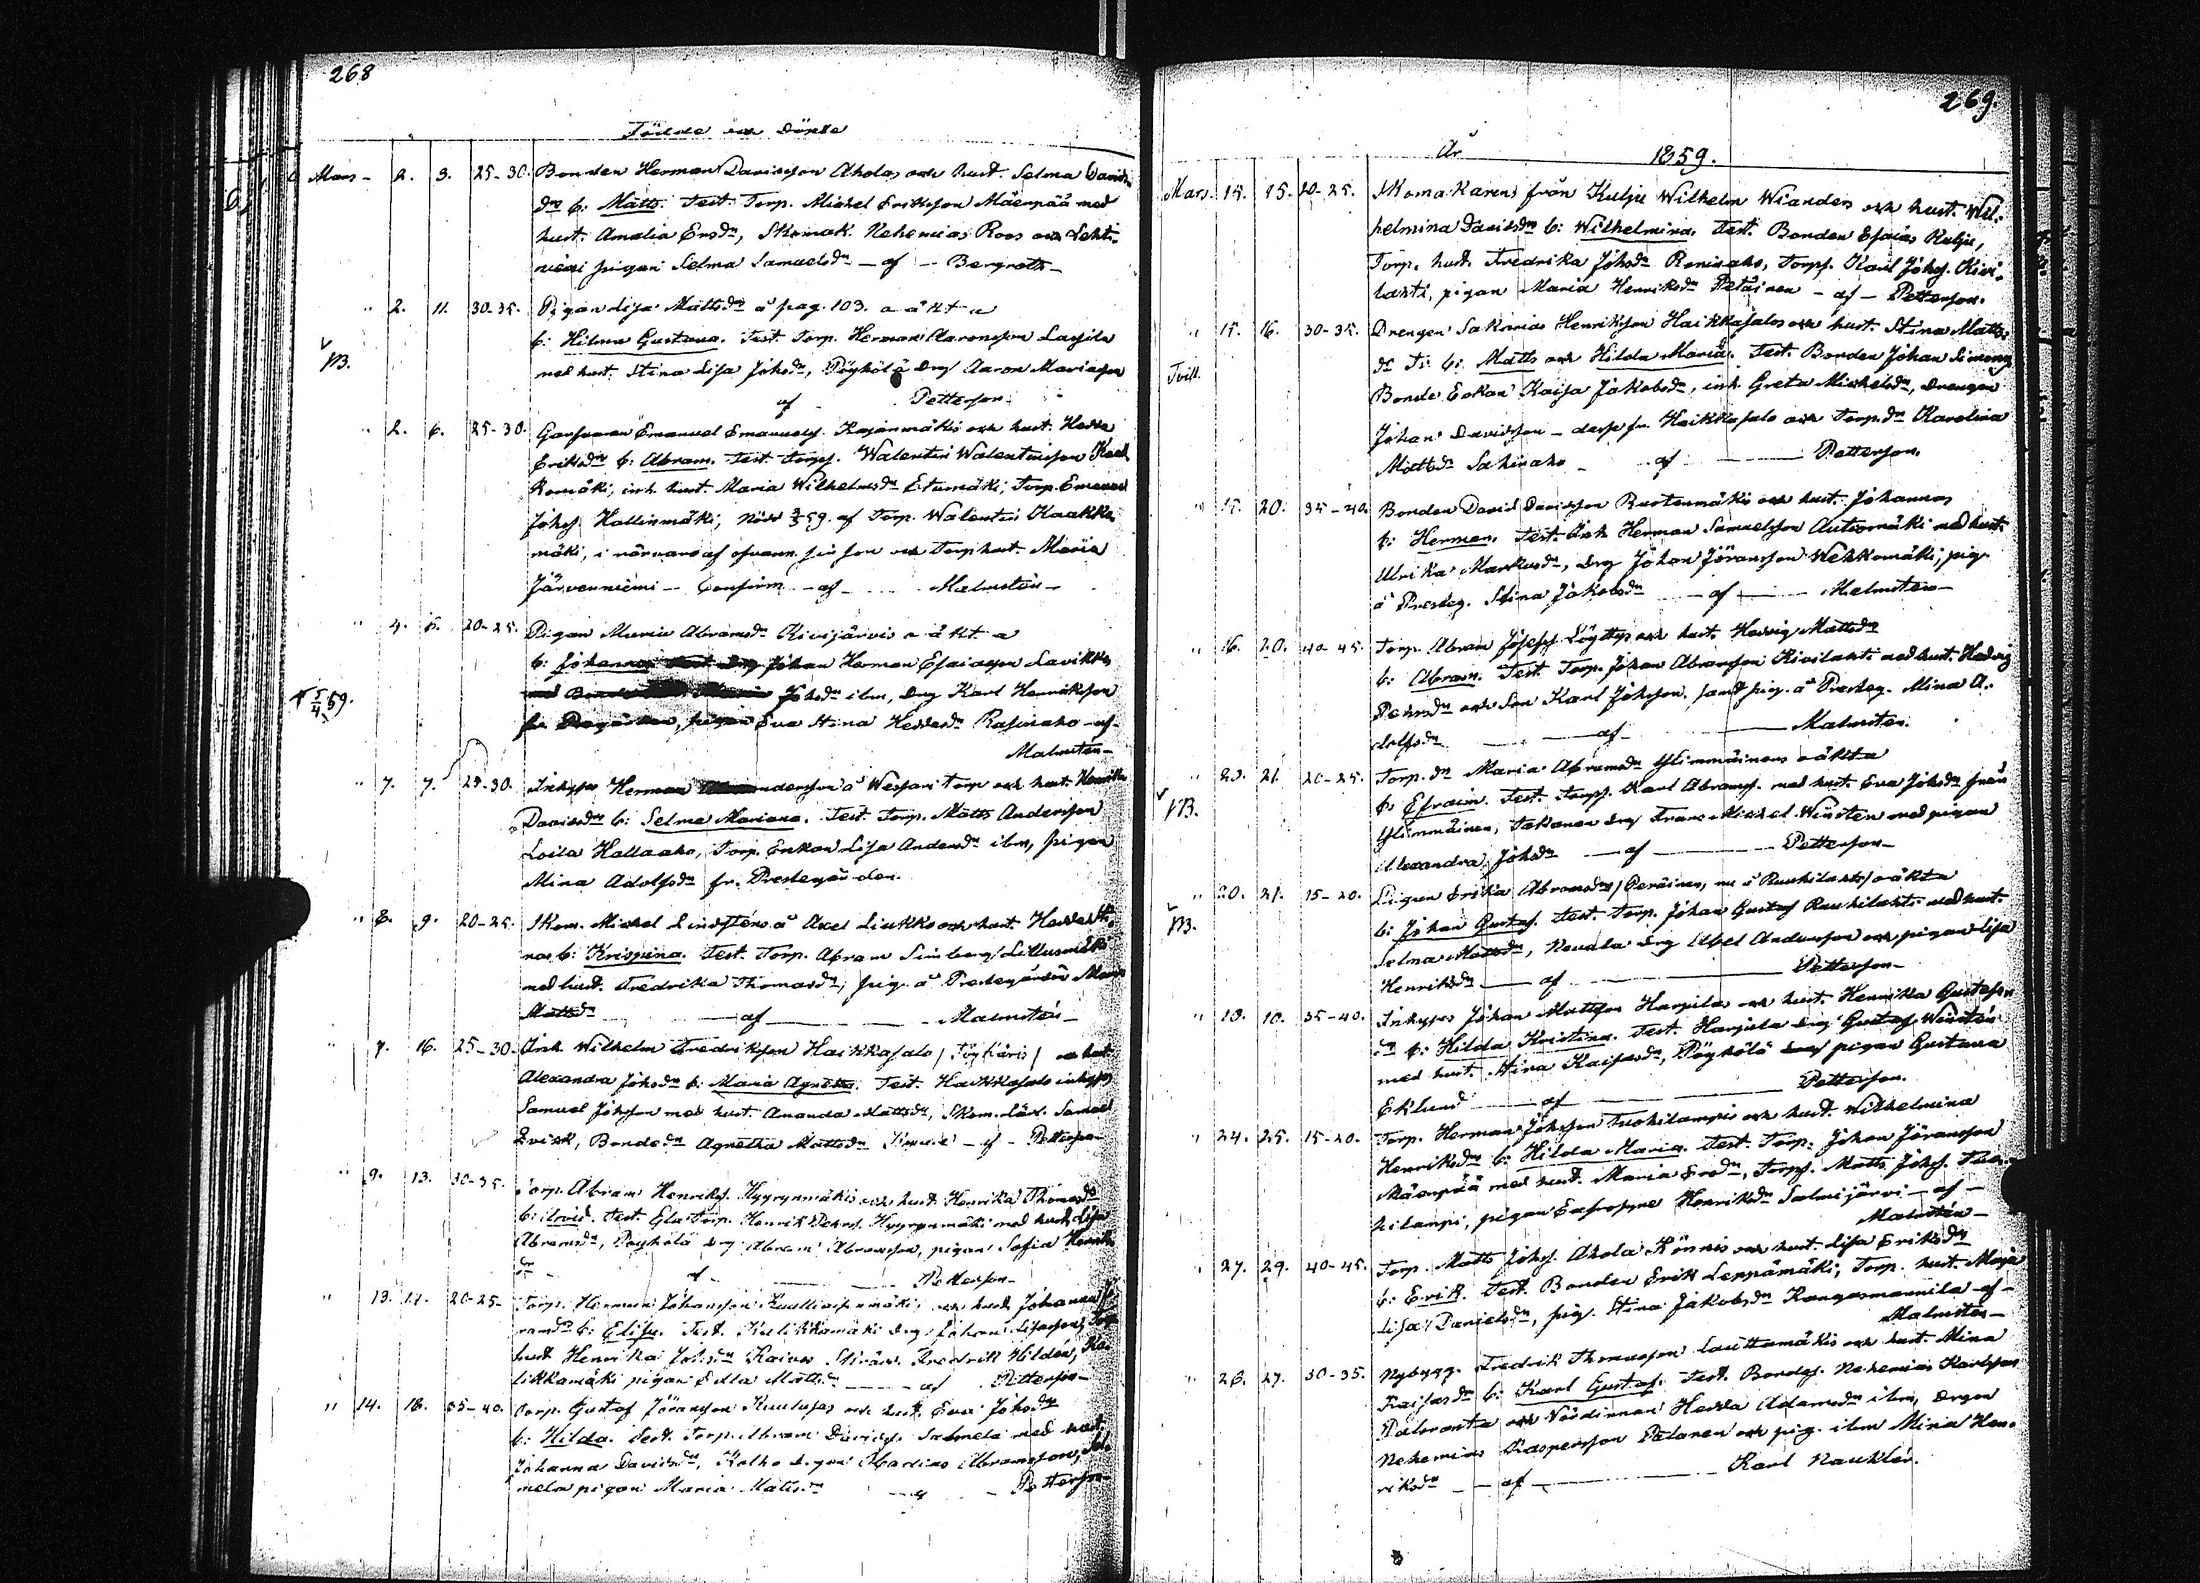 268
Födde och Döpte
Mars - 2. 3. 25-30. Bonden Herman Davidsson Ahola och hust. Selma Davids
dr b: Matts. Test. Torp. Michel Eriksson Mäenpää med
hust. Amalia Ersdr, Skomak. Nehemias Roos och Lehto
niemi pigan Selma Samuelsdr - af - Bergroth -
" 2. 11. 30-35. Pigan Lisa Mattsdr å pag. 103. oäkta
b: Hilma Gustava. Test. Torp. Herman Aaronsson Lassila
NB.
med hust. Stina Lisa Johsdr, Pöyhölä drg Aaron Mariasson
af Petterson.
" 2. 6. 25-30. Emanuel Emanuels. Kajanmäki och hust. Hedda
Eriksdr b: Abram. Test. Torps. Walentin Walentinsson
mäki, inh. hust. Maria Wilhelmsdr Etumäki, Torp.
Johs. Hallinmäki, Nöddöpt 59. af Torp. Walentin Kaakko
mäki, i närvaro af ofvann. sin son och Torp hust. Maria
Järvenniemi - Confirm. - af - Malmstén -
" 4. 5. 20-25. Pigan Maria Abramsdr Kivijärvis oäkta
b: Johannes Johan Herman Esaiasson Lavikko
Johsdr ibm, drg Karl Henriksson
† 5/4 59.
fr. Prestgården, pigan Eva Stina Heddasdr Rasinaho - af -
Malmstén -
" 7. 7. 25-30. Inhyses Herman andersson å Wesaari torp och hust. Henrika
Davidsdr b: Selma Mariana. Test. Torp. Matts Andersson
Loila Hallaaho, Torp. Enkan Lisa Andersdr ibm, pigan
Mina Adolfsdr fr. Prestegården.
" 8. 9. 20-25. Skom. Michel Lindsténs å Axel Liukko och hust. Hedda
nas b: Krispina. Test. Torp. Abram Simberg Litlusmäki
med hust. Fredrika Thomasdr, pig. å Prestegården Maria
Mattsdr af Malmstén -
" 7. 16. 25-30. Inh. Wilhelm Fredriksson Haikkasalo / och hust.
Alexandra Johsdr b: Maria Agnetha. Test. Haikkasalo inhyses
Samuel Johsson med hust. Amanda Mattsdr, Skom. lär. Samuel
Qvick, Bondedr Agnetha Mattsdr - af - Petterson
" 9. 13. 30-35. Torp. Abram Henriks. Hyyrynmäkis och hust. Henrika Thomasdr
b: Test. Torp. Henrik Pehrs. Hyyrynmäki med hust. Lisa
Abramsdr, Pöyhölä drg Abram Abramsson, pigan Sofia Henriks
dr - af - Petterson -
" 13. 17. 20-25. Torp. Herman Johansson och hust. Johanna
ramsdr b: Elisa. Test. Kulikkamäki drg Johan Lisasson, Torp
hust. Henrika Johsdr Fredrik Hildén, Ku
likkamäki pigan Edla Mattsdr - af Petterson -
" 14. 18. 35-40. Torp. Gustaf Jöransson Kuulusas och hust. Eva Johsdr
b: Hilda. Test. Torp. Abram Davids. Salmela med hust.
Johanna Davidsdr, Kalho drgn Abramsson, Sal
mela pigan Maria Mattsdr - af - Petterson
269.
År 1859.
Mars. 14. 15. 20-25. Skomakarens från Kulju Wilhelm Wianders och hust. Wil-
helmina Davidsdr b: Wilhelmina. Test. Bonden Esaias Kulju,
Torp. hust. Fredrika Johsdr Reniaho, Torps. Karl Johs. Kivi-
lahti, pigan Maria Henriksdr Petäinen - af - Petterson.
" 15. 16. 30-35. Drengen Sakarias Henriksson Haikkasalos och hust. Stina Matts
Tvill.
dr b: Matts och Hilda Maria. Test. Bonden Johan Simons
Bonde Enkan Kaisa Jakobsdr, inh. Greta Michelsdr, drengen
Johan Davidsson - desse fr. Haikkasalo och Torp.dr Karolina
Mattsdr Sahinaho - af - Petterson.
" 15. 20. 35-40. Bonden David Davidsson Ruotenmäkis och hust. Johannas
b: Herman. Test. Inh. Herman Samuelsson Autiomäki med hust.
Ulrika Markusdr, drg Johan Jöransson Wehkomäki, pig.
å Presteg. Stina Jakobsdr - af - Malmstén -
" 16. 20. 40-45. Torp. Abram Josefs. Löyttys och hust. Hedvig Mattsdr
b: Abram. Test. Torp. Johan Abramsson Kivilahti med hust. Hedvig
Pehrsdr och son Karl Johsson, samt pig. å Presteg. Mina A-
dolfsdr - af - Malmstén.
" 20. 21. 20-25. Torp.dr Maria Abramsdr Ylimmäinens oäkta
NB.
b: Efraim. Test. Torps. Karl Abrams. med hust. Eva Johsdr från
Ylimmäinen, Takanen drg Frans Michel Winstén med pigan
Alexandra Johsdr - af - Petterson -
" 20. 21. 15-20. Pigan Erika Abramsdrs / Peräinen, nu å Ruuhilahti / oäkta
NB.
b: Johan Gustaf. Test. Torp. Johan Gustaf Ruuhilahti med hust.
Selma Mattsdr, Nevala drg Abel Andersson och pigan Lisa
Henriksdr - af - Petterson -
" 10. 10. 35-40. Inhyses Johan Mattsson Harjulas och hust. Henrika Gustafs
dr b: Hilda Kristina. Test. Harjula drg Gustaf Winstén
med hust. Stina Kaisasdr, Pöyhölä pigan Gustava
Eklund - af - Petterson.
" 24. 25. 15-20. Torp. Herman Johsson Tuohilampis och hust. Wilhelmina
Henriksdr b: Hilda Maria. Test. Torp. Johan Jöransson
Mäenpää med hust. Maria Ersdr, Torps. Matts Johs. Tuo-
hilampi, pigan Eufrosyne Henriksdr Salmijärvi - af -
Malmstén -
" 27. 29. 40-45. Torp. Matts Johs. Ahola Könnis och hust. Lisa Eriksdr
b: Erik. Test. Bonden Erik Leppämäki, Torp. hust. Maja
Lisa Danielsdr, pig. Stina Jakobsdr Kangasmannila - af -
Malmstén -
" 26. 27. 30-35. Nybygg. Fredrik Thomasson Lauttamäkis och hust. Mina
Kaisasdr b: Karl Gustaf. Test. Bondes. Nehemias Karlsson
och Värdinnan Hedda Adamsdr ibm, drgen
Nehemias Kaspersson Palanen och pig. ibm Mina Hen-
riksdr - af - Karl Nauklér.